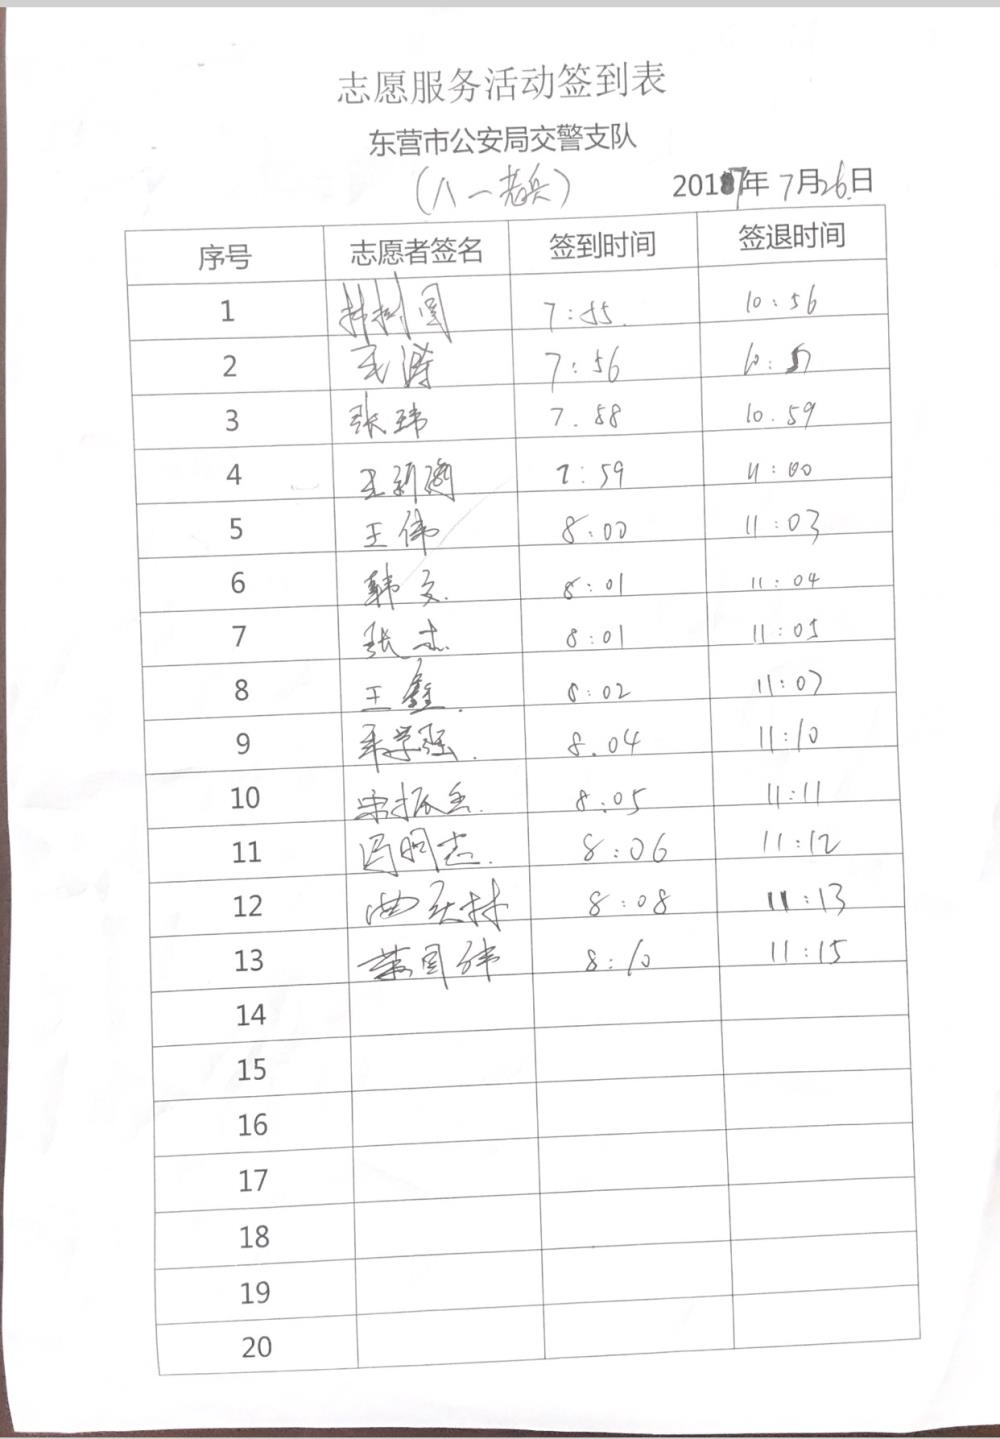 志愿服务活动签到表
东营市公安局交警支队
(八一老兵)
2017年 7月26日
序号 志愿者签名 签到时间 签退时间
1 7:55 10:56
2 毛涛 7:56 10:57
3 张玮 7.58 10.59
4 王新 7:59 11:00
5 王伟 8:00 11:03
6 韩文 8:01 11:04
7 张杰 8:01 11:05
8 王鑫 8:02 11:07
9 学强 8.04 11:10
10 宋振 8:05 11:11
11 冯明志 8:06 11:12
12 曲庆林 8:08 11:13
13 国伟 8:10 11:15
14
15
16
17
18
19
20